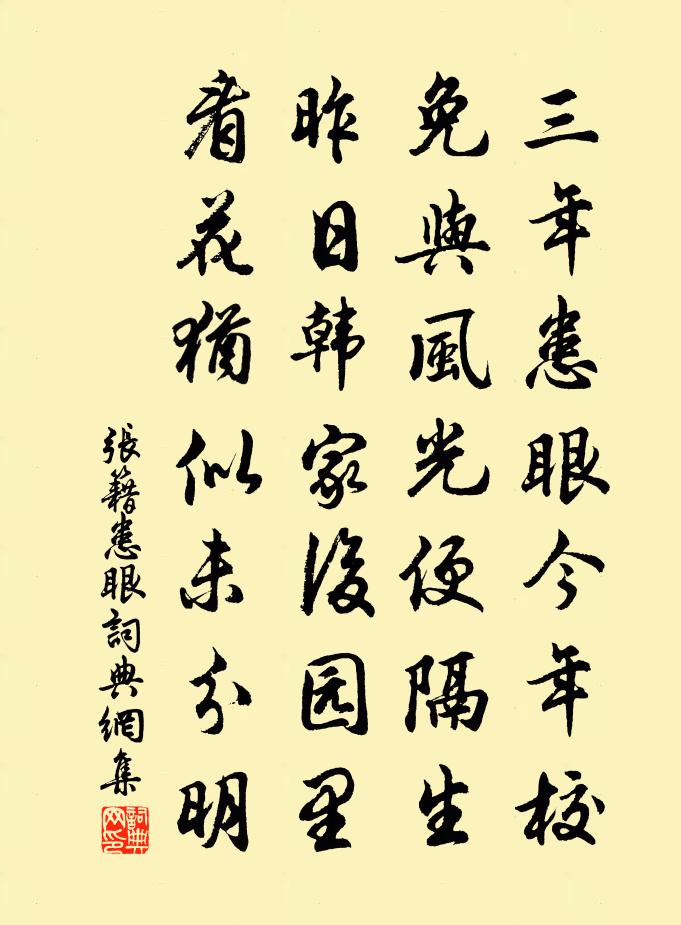 三年患眼今年校
免與風光便隔生
昨日韩家後园里
看花犹似未分明
張籍患眼詞典網集
詞典網印